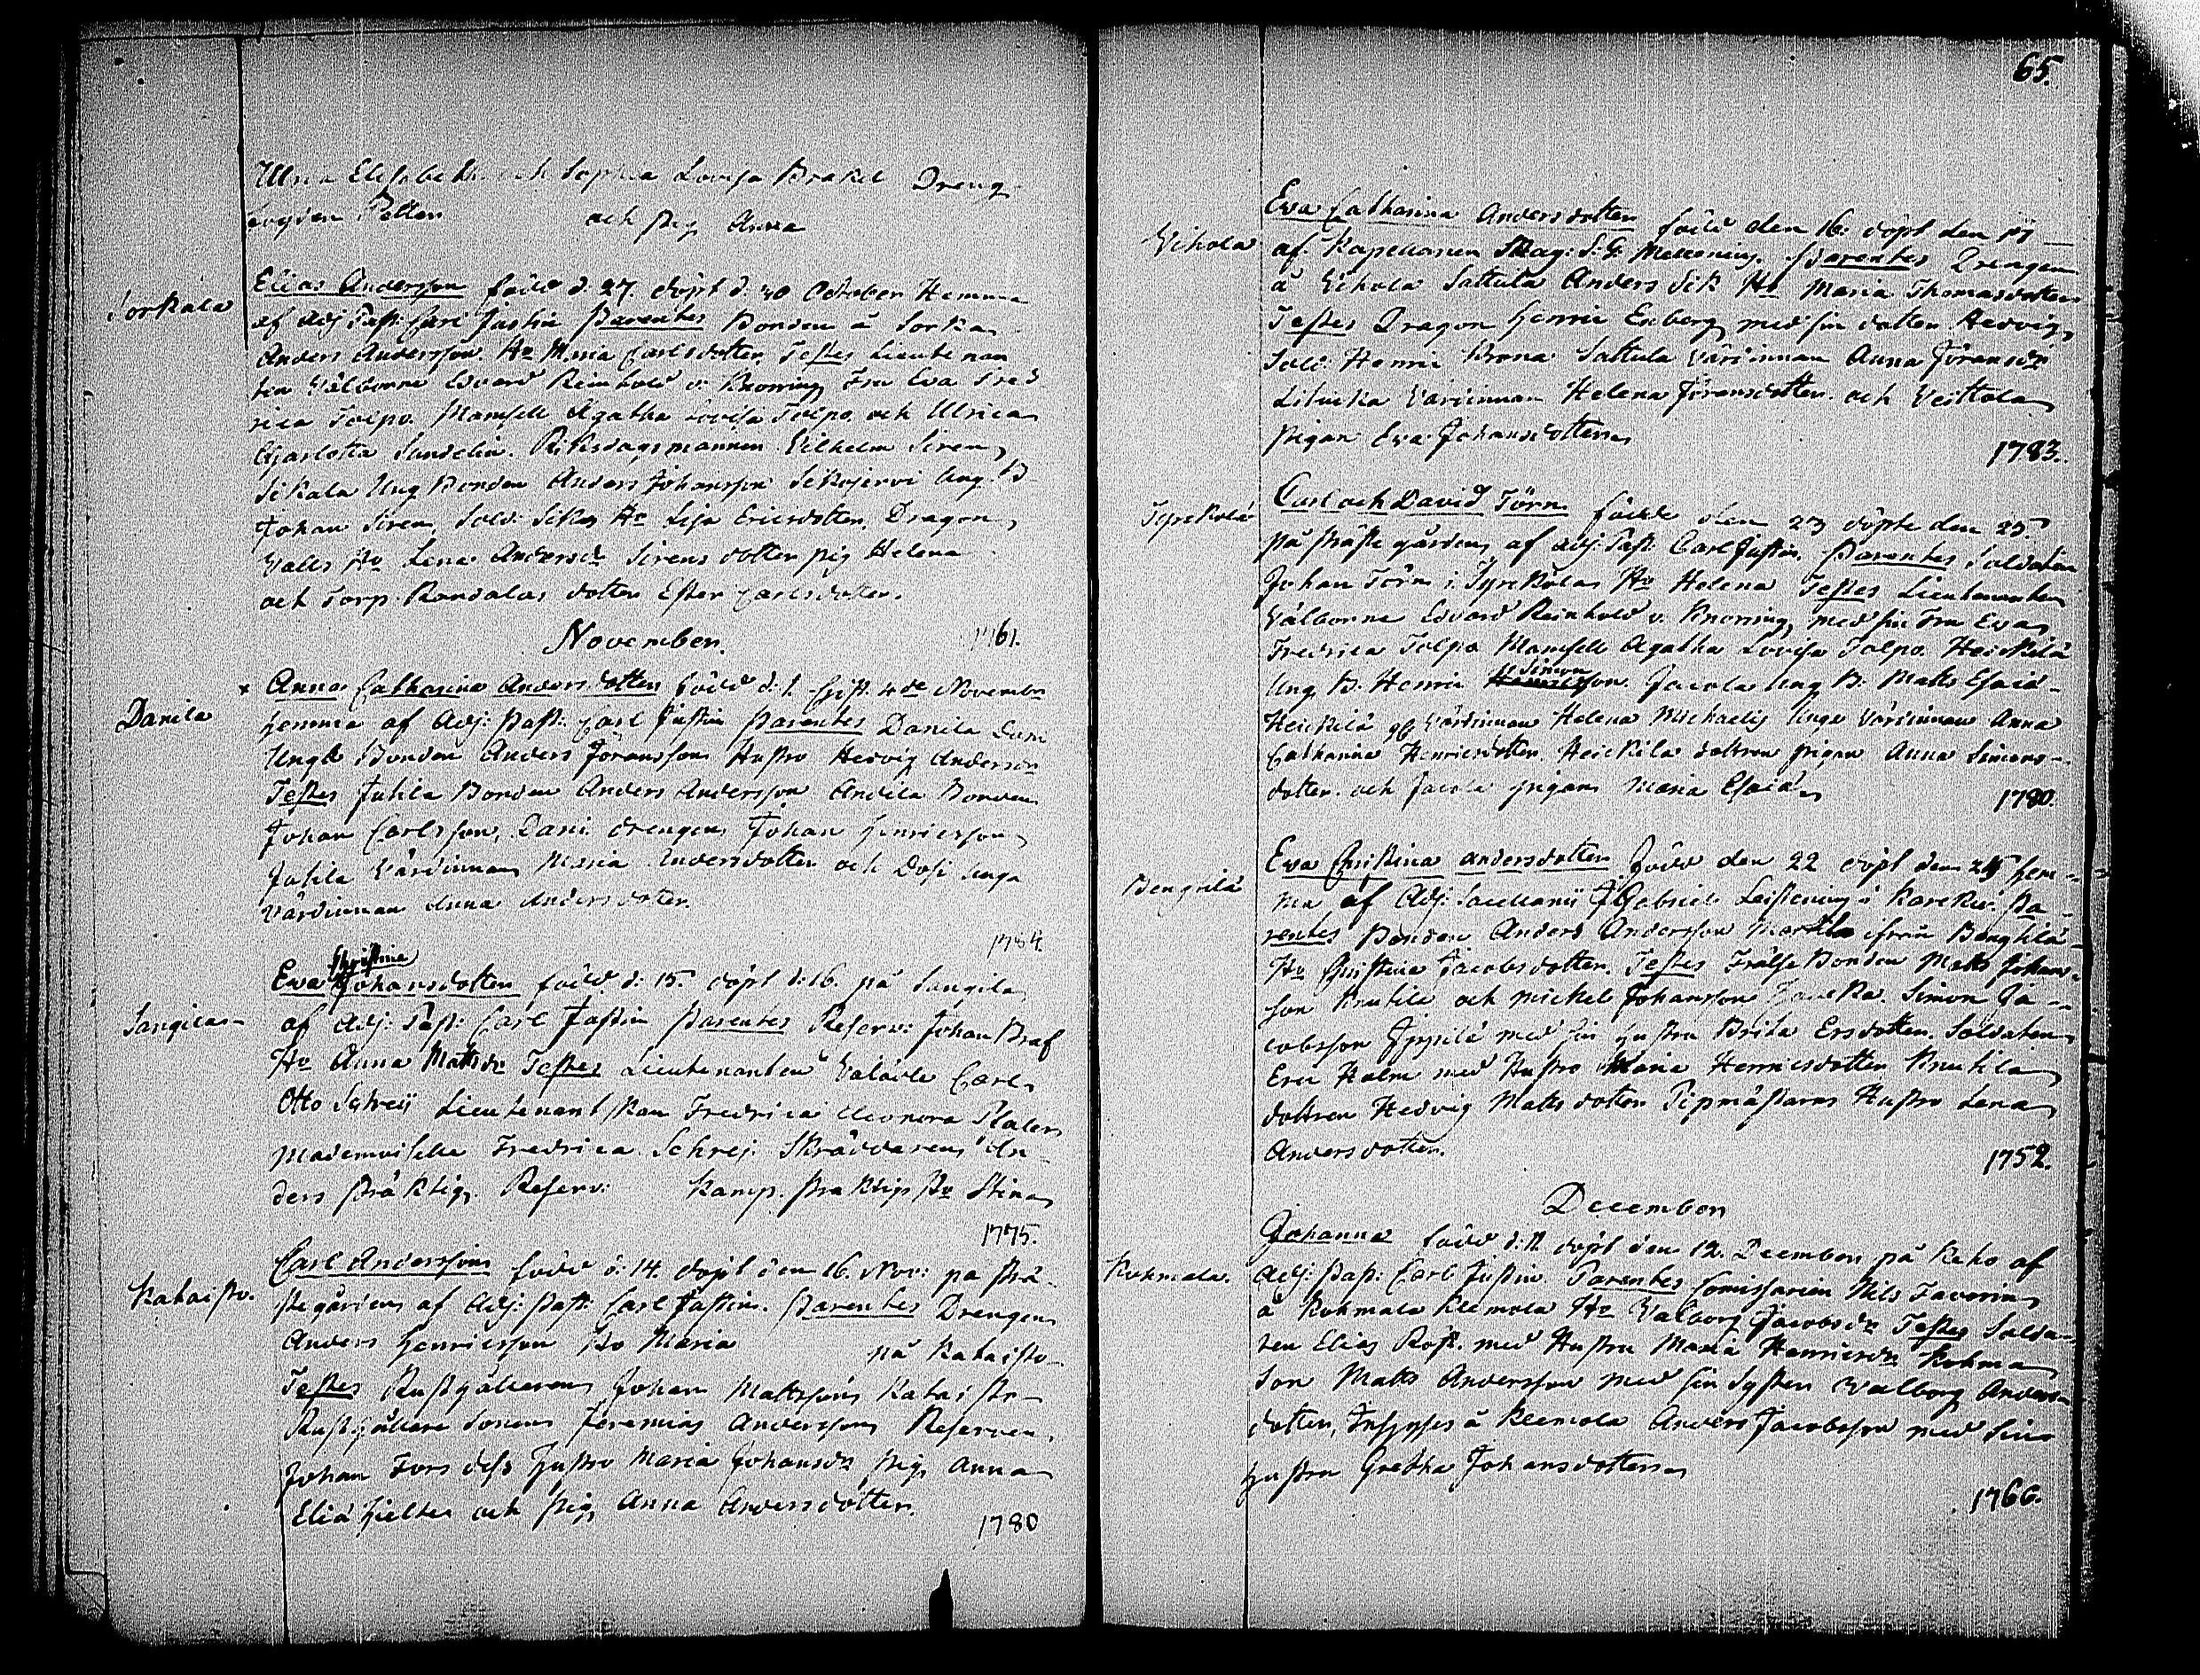 Ulrica Elisabeth och Sophia Lovisa Brakel Dreng
Petter och pig Anna
Sorkala
Elias Andersson född d. 27. döpt d. 30 October Hemma
af Adj: Past: Carl Justin Parentes Bonden å Sorka
Anders Andersson Ho Maria Carlsdotter Testes Lieutenan
ten Välborne Edvard Reinhold v. Knorring Fru Eva Fred
rica Tolpo. Mamsell Agatha Lovisa Tolpo och Ulrica
Charlotta Sundelin. Riksdagsmannen Vilhelm Siren
Sikala Ung Bonden Anders Johansson Sikojervi Ung B
Johan Siren, Sold: Ho Lisa Ericsdotter, Dragon
Ho Lena Andersdr Sirens dotter pig Helena
och Torp. Randalas dotter Ester Carlsdotter.
1761.
November.
Danila
x Anna Catharina Andersdotter född d. 1 Chst. 4de November
hemma af Adj: Past: Carl Justin Parentes Danila
Unge Bonden Anders Jöransson Hustro Hedvig Andersdr
Testes Juhila Bonden Anders Andersson Andila Bonden
Johan Carlsson, Dani drengen Johan Henricsson
Juhila Värdinnan Maria Andersdotter och Dosi unga
Värdinnan Anna Andersdotter.
1784.
Sangilas
Christina
Ewa Johansdotter född d. 15. döpt d. 16. på Sangila
af Adj: Past: Carl Justin Parentes Reserv: Johan Braf
Ho Anna Mattsdr Testes Lieutenanten Välädle Carl
Otto Schreij Lieutenantskan Fredrica Eleonora Plaler
Mademoiselle Fredrica Schrej: Skräddaren An
ders Präktig. Reserv: Kamp. Praktigs Ho Stina
1775.
Kataisto.
Carl Andersson född d. 14. döpt den 16. Nov: på Prä-
stegården af Adj: Past: Carl Justin. Parentes Drengen
Anders Henricsson Ho Maria på Kataisto
Testes Rusthållaren Johan Mattsson Kataisto
Rusthållare Sonen Jeremias Andersson Reserven
Johan Fors dess Hustro Maria Johansdr pig Anna
Elia Hielte och pig Anna Andersdotter.
1780
65.
Vihola
Eva Catharina Andersdotter född den 16. döpt den 17
af Kapellanen Mag: S. G. Mellenius. Parentes Drengen
å Vihola Sattula Anders Sik Ho Maria Thomasdotter
Testes Dragon Henric Enberg med sin dotter Hedvig,
Sold. Henric Krona Sattula Värdinnan Anna Göransdr
Värdinnan Helena Göransdotter och Veittola
pigan Eva Johansdotter
1783.
Tyrskölä
Carl och David Törn födde den 23 döpte den 25.
på prästegården af Adj: Past: Carl Justin. Parentes Soldaten
Johan Törn i Tyrskölä Ho Helena Testes Lieutenanten
Välborne Edvard Reinhold v. Knorring med sin Fru Eva
Fredrica Tolpo Mamsell Agatha Lovisa Tolpo. Heickilä
Simon
Ung B. Henric son. Jacola Ung B. Matts Esaid-
Heickilä gb Värdinnan Helena Michaelis Unge Värdinnan Anna
Catharina Henricsdotter. Heickila dottren pigan Anna Simons-
dotter och Jacola pigan Maria Esaid
1780.
Bengtilä
Eva Christina Andersdotter född den 22 döpt den 24 hem-
ma af Adj: Sacellanii J. Gabriel Leistenius i Karcku. Pa
rentes Bonden Anders Andersson Marttila ifrån Bengtilä
Ho Christina Jacobsdotter. Testes Frälse Bonden Matts Johans
son Knutila och Michel Johansson Simon Ja-
cobsson Jyppilä med sin hustru Brita Ersdotter. Soldaten
Eric Holm med Hustro Maria Henricsdotter Knutila
dottren Hedvig Mattsdotter Pipmästarns Hustro Lena
Andersdotter.
1752.
December
Kokmala.
Johanna född d. 11. döpt den 12. December på Keho af
Adj: past: Carl Justin Parentes Comissarien Nils Favorin
å Kokmala Klemola Ho Valborg Jacobsdr Testes Solda-
ten Elias Rosk. med Hustru Maria Henricsdr Kokma
Son Matts Andersson med sin Syster Walborg Anders
dotter, Inhyses å Klemola Anders Jacobsson med Sin
hustru Gretha Johansdotter
1766.